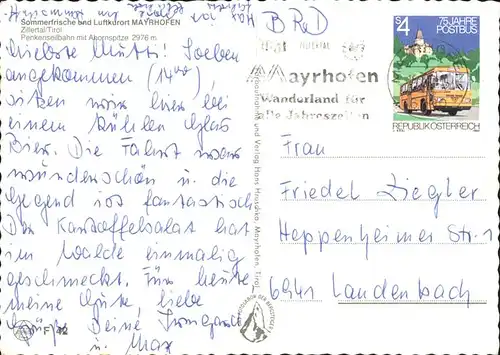 Sommerfrische und Luftkurort MAYRHOFEN
Zillertal/Tirol
Penkenseilbahn mit Ahornspitze 2976 m
Liebste Mutti! Soeben
angekommen (14⁰⁰)
sitzen wir hier bei
einem kühlen Glas
Bier. Die Fahrt war
wunderschön u. die
Gegend ist fantastisch
Der Kartoffelsalat hat
im Walde einmalig
geschmeckt. Für heute
meine Gute liebe
Grüße Deine Irmgard
u. Max
BRD
Mayrhofen
Wanderland für
alle Jahreszeiten
S 4
75 JAHRE
POSTBUS
REPUBLIK ÖSTERREICH
Frau
Friedel Ziegler
Heppenheimer Str. 1
6941 Laudenbach
und Verlag Hans Hruschka, Mayrhofen, Tirol